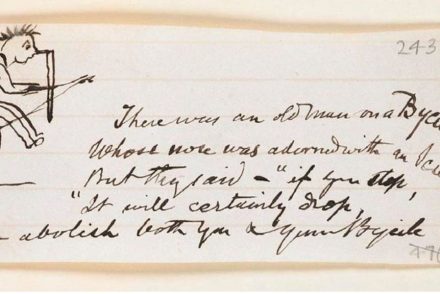 243
There was an old man on a Byc
Whose nose was adorned with an Ic
But they said — "if you stop,
"It will certainly drop,
& abolish both you & your Bycicle